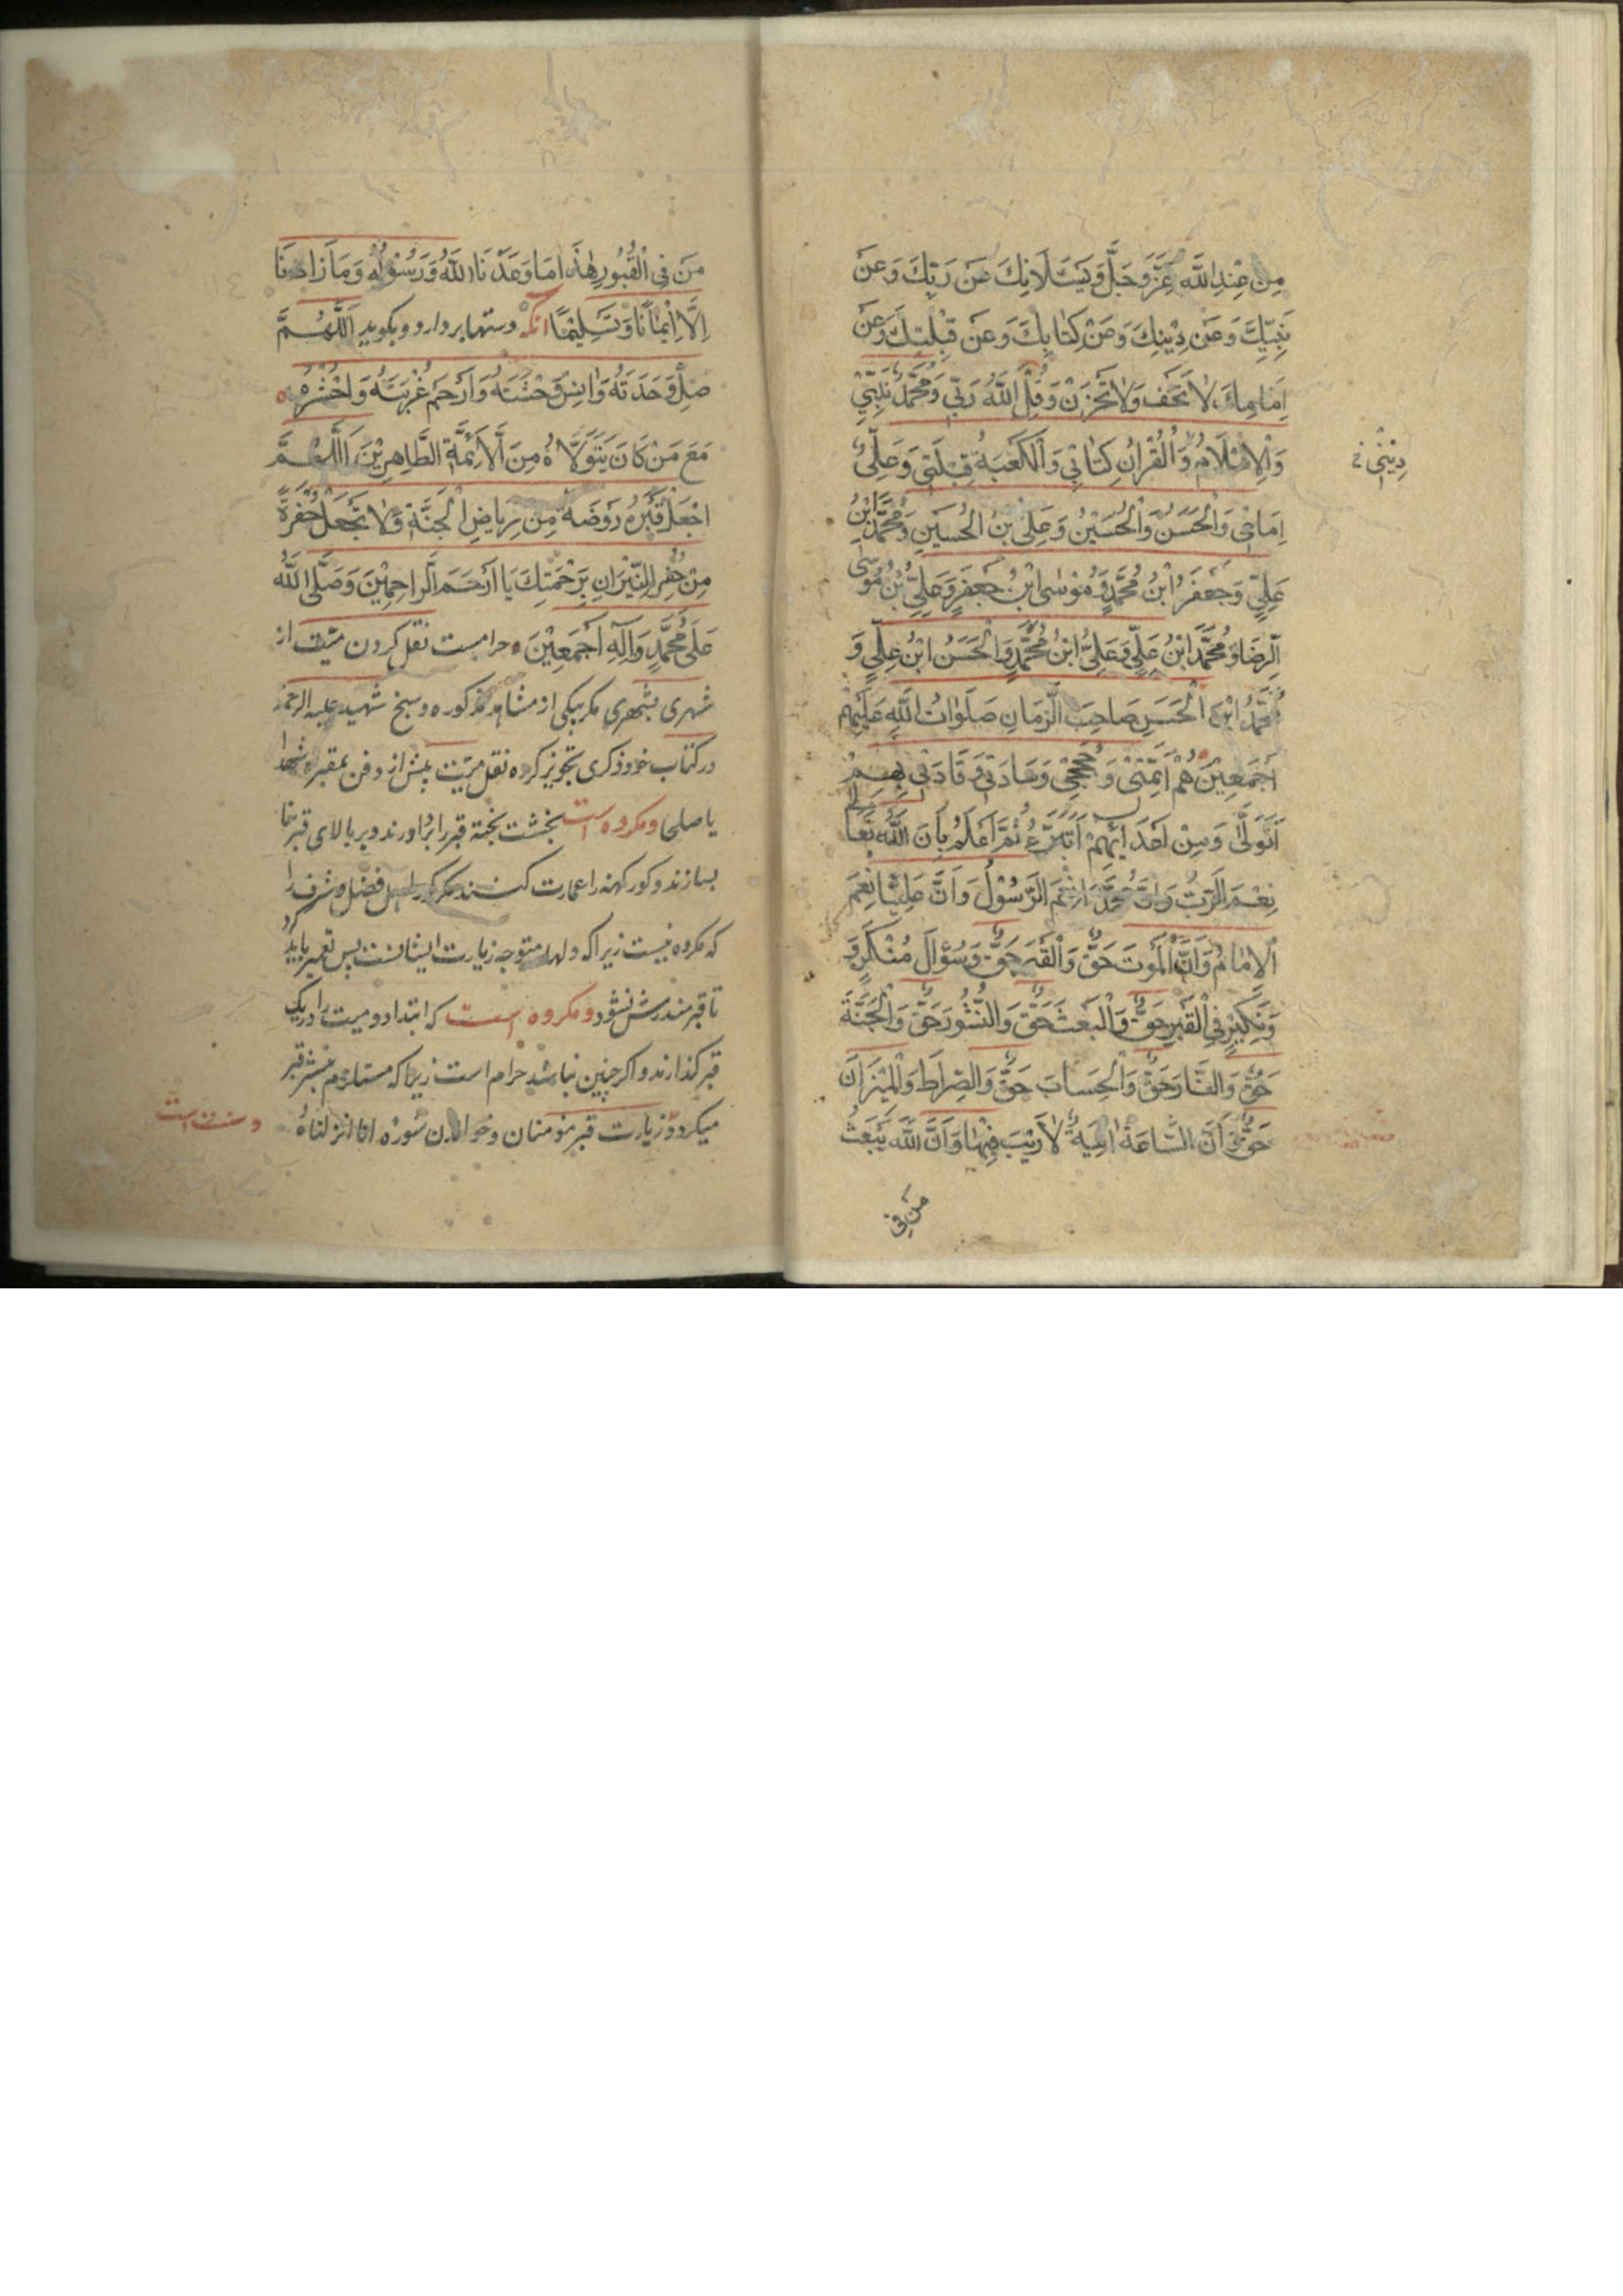 مِنْ عِنْدِ اللّٰهِ عَزَّ وَجَلَّ وَيَسْئَلَانِكَ عَنْ رَبِّكَ وَعَنْ
نَبِيِّكَ وَعَنْ دِيْنِكَ وَعَنْ كِتَابِكَ وَعَنْ قِبْلَتِكَ وَعَنْ
اِمَامِكَ لَا تَخَفْ وَلَا تَحْزَنْ وَقُلْ اَللّٰهُ رَبِّي وَمُحَمَّدٌ نَبِيِّي
وَالْاِسْلَامُ دِيْنِي وَالْقُرْاٰنُ كِتَابِي وَالْكَعْبَةُ قِبْلَتِي وَعَلِيٌّ
اِمَامِي وَالْحَسَنُ وَالْحُسَيْنُ وَعَلِيُّ بْنُ الْحُسَيْنِ وَمُحَمَّدُ ابْنُ
عَلِيٍّ وَجَعْفَرُ ابْنُ مُحَمَّدٍ وَمُوْسٰى ابْنُ جَعْفَرٍ وَعَلِيُّ بْنُ مُوْسٰى
الرِّضَا وَمُحَمَّدُ ابْنُ عَلِيٍّ وَعَلِيُّ ابْنُ مُحَمَّدٍ وَالْحَسَنُ ابْنُ عَلِيٍّ وَ
مُحَمَّدُ ابْنُ الْحَسَنِ صَاحِبُ الزَّمَانِ صَلَوَاتُ اللّٰهِ عَلَيْهِمْ
اَجْمَعِيْنَ هُمْ اَئِمَّتِيْ وَحُجَجِيْ وَسَادَتِي وَقَادَتِي بِهِمْ
اَتَوَلّٰى وَمِنْ اَعْدَائِهِمْ اَتَبَرَّءُ ثُمَّ اعْلَمْ بِاَنَّ اللّٰهَ تَعَالٰى
نِعْمَ الرَّبُّ وَاَنَّ مُحَمَّدًا نِعْمَ الرَّسُوْلُ وَاَنَّ عَلِيًّا نِعْمَ
الْاِمَامُ وَاَنَّ الْمَوْتَ حَقٌّ وَالْقَبْرَ حَقٌّ وَسُؤَالَ مُنْكَرٍ وَ
وَنَكِيْرٍ فِي الْقَبْرِ حَقٌّ وَالْبَعْثَ حَقٌّ وَالنُّشُوْرَ حَقٌّ وَالْجَنَّةَ
حَقٌّ وَالنَّارَ حَقٌّ وَالْحِسَابَ حَقٌّ وَالصِّرَاطَ وَالْمِيْزَانَ
حَقٌّ وَاَنَّ السَّاعَةَ اٰتِيَةٌ لَا رَيْبَ فِيْهَا وَاَنَّ اللّٰهَ يَبْعَثُ
مَنْ فِي
مَنْ فِي الْقُبُوْرِ هٰذَا مَا وَعَدَنَا اللّٰهُ وَرَسُوْلُهُ وَمَا زَادَنَا
اِلَّا اِيْمَانًا وَتَسْلِيْمًا آنگه دستها بردارد و بگوید اَللّٰهُمَّ
صِلْ وَحْدَتَهُ وَاٰنِسْ وَحْشَتَهُ وَارْحَمْ غُرْبَتَهُ وَاحْشُرْهُ
مَعَ مَنْ كَانَ يَتَوَلَّاهُ مِنَ الْاَئِمَّةِ الطَّاهِرِيْنَ اَللّٰهُمَّ
اجْعَلْ قَبْرَهُ رَوْضَةً مِنْ رِيَاضِ الْجَنَّةِ وَلَا تَجْعَلْ حُفْرَةً
مِنْ حُفَرِ النِّيْرَانِ بِرَحْمَتِكَ يَا اَرْحَمَ الرَّاحِمِيْنَ وَصَلَّى اللّٰهُ
عَلٰى مُحَمَّدٍ وَاٰلِهِ اَجْمَعِيْنَ حرامست نقل کردن میّت از
شهری بشهری مگر بیکی از مشاهد مذکوره و شیخ شهید علیه الرحمه
در کتاب خود ذکری تجویز کرده نقل میّت پیش از دفن بمقبره شهدا
یا صلحا و مکروه است بخشت پخته قبر را براورند و بر بالای قبر بنا
بسازند و کور کهنه را عمارت کنند مگر کور اهل فضل و شرف را
که مکروه نیست زیرا که دلها متوجه زیارت ایشانست پس تعمیر باید کرد
تا قبر مندرس نشود و مکروه است که ابتدا دو میت را در یک
قبر گذارند و اگر چنین نباشد حرام است زیرا که مستلزم نبش قبر
میگردد و زیارت قبر مؤمنان و خواندن سُورَه انا انزلناهُ
و سنت است